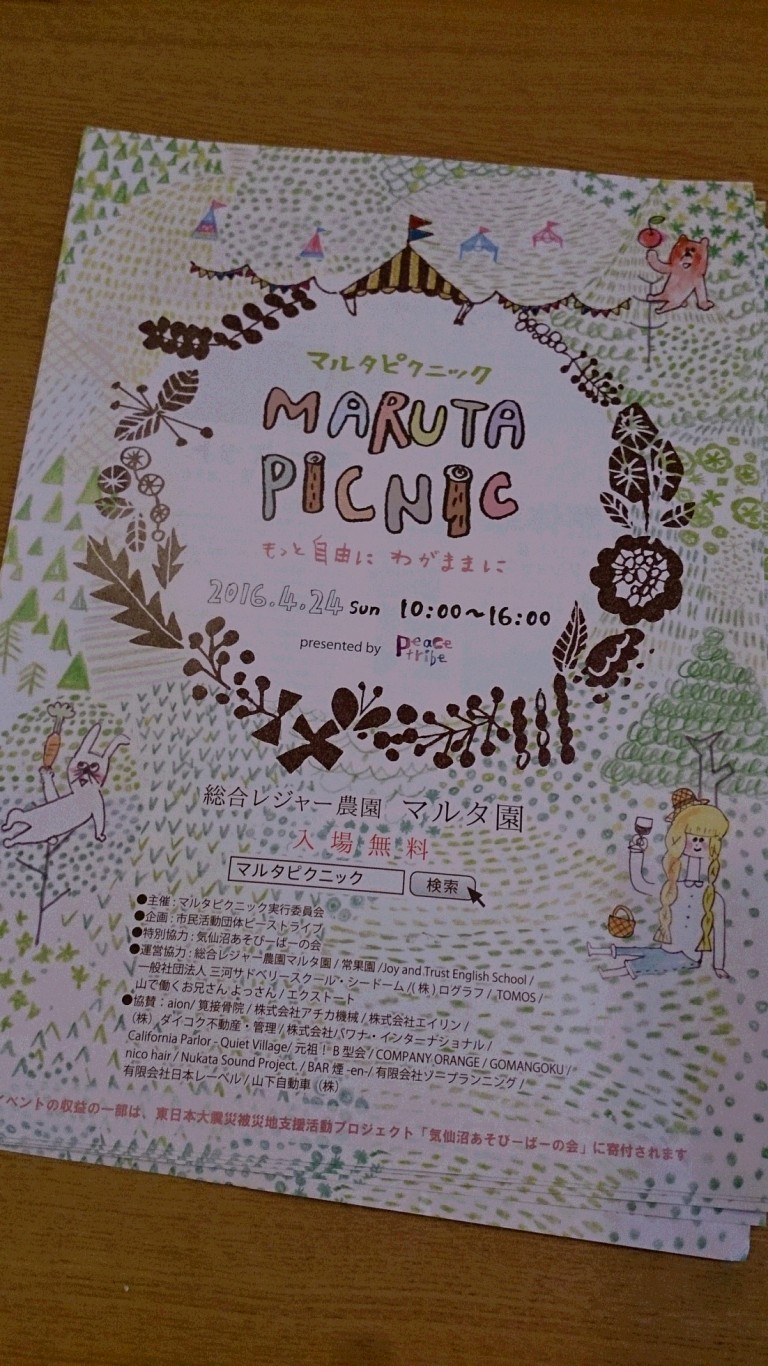 マルタピクニック
MARUTA
PICNIC
もっと自由に わがままに
2016.4.24 Sun 10:00~16:00
presented by peace tribe
総合レジャー農園 マルタ園
入場無料
マルタピクニック 検索
●主催:マルタピクニック実行委員会
●企画:市民活動団体ピーストライブ
●特別協力:気仙沼あそびーばーの会
●運営協力:総合レジャー農園マルタ園/常果園/Joy and Trust English School/
一般社団法人 三河サドベリースクール・シードーム/(株)ログラフ/TOMOS/
山で働くお兄さん よっさん/エクストート
●協賛:aion/筧接骨院/株式会社アチカ機械/株式会社エイリン/
(株)ダイコク不動産・管理/株式会社パワナ・インターナショナル/
California Parlor - Quiet Village/元祖!B型会/COMPANY ORANGE/GOMANGOKU/
nico hair/Nukata Sound Project./BAR 煙 -en-/有限会社ソープランニング/
有限会社日本レーベル/山下自動車(株)
イベントの収益の一部は、東日本大震災被災地支援活動プロジェクト「気仙沼あそびーばーの会」に寄付されます